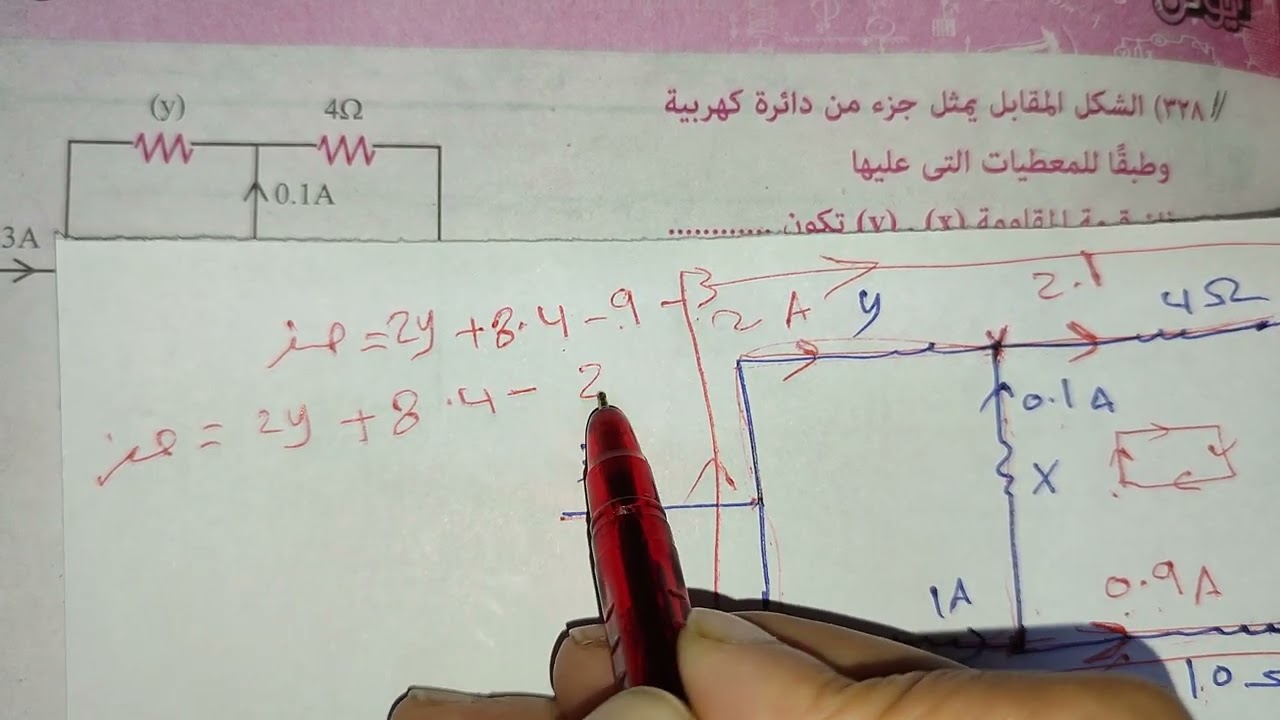 ٣٢٨) الشكل المقابل يمثل جزء من دائرة كهربية
وطبقًا للمعطيات التى عليها
قيمة المقاومة (x) ، (y) تكون ............
(y)
4Ω
0.1A
3A
صفر = 2y + 8.4 - 9 -
صفر = 2y + 8.4 - 2
2 A
y
2.1
4Ω
0.1A
X
1A
0.9A